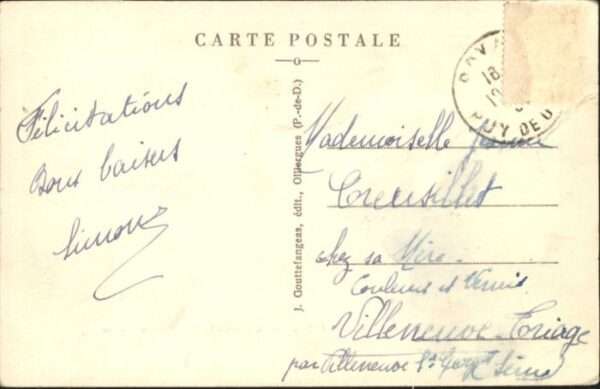 CARTE POSTALE
Félicitations
Bons baisers
Simone
J. Gouttefangeas, édit., Olliergues (P.-de-D.)
ROYA
18
PUY DE D
Mademoiselle
chez sa Mère
Couleurs et Vernis
Villeneuve-Triage
par Villeneuve St Georges Seine